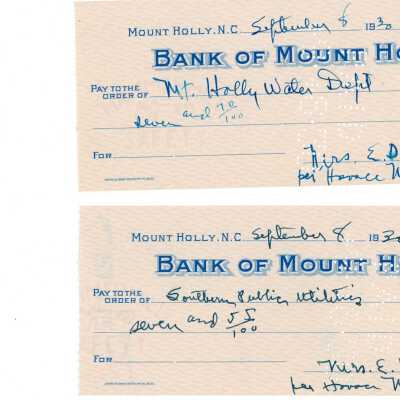 MOUNT HOLLY, N.C. September 8 1930
BANK OF MOUNT HO
PAY TO THE ORDER OF Mt. Holly Water Dept
seven and 70/100
FOR
Mrs. E. D
per Horace M
MOUNT HOLLY, N.C. September 8 1930
BANK OF MOUNT HO
PAY TO THE ORDER OF Southern Public Utilities
seven and 55/100
FOR
Mrs. E.
per Horace M